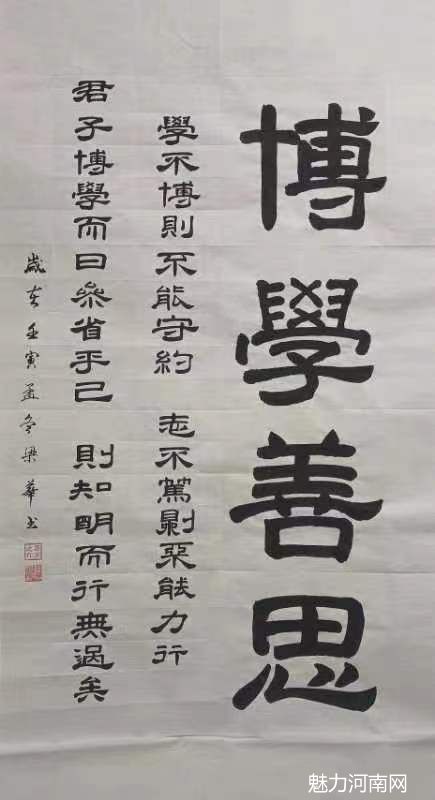 博學善思
學不博則不能守約 志不篤則不能力行
君子博學而日參省乎己 則知明而行無過矣
歲在壬寅孟冬梁華书
魅力河南网